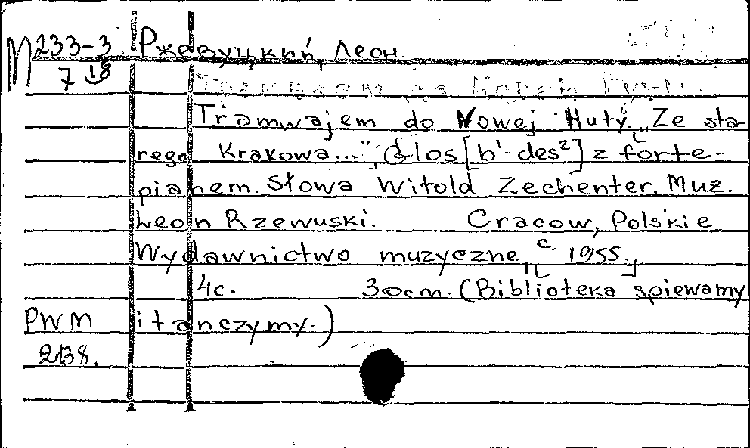 М 233-3 Ржевуцкий, Леон.
7 18
Tramwajem do Nowej Huty „Ze sta-
rego Krakowa..." Głos [h¹-des²] z forte-
pianem. Słowa Witold Zechenter. Muz.
Leon Rzewuski. Cracow, Polskie
Wydawnictwo muzyczne, [c 1955]
4c. 30cm. (Biblioteka spiewamy
PWM i tanczymy.)
238.